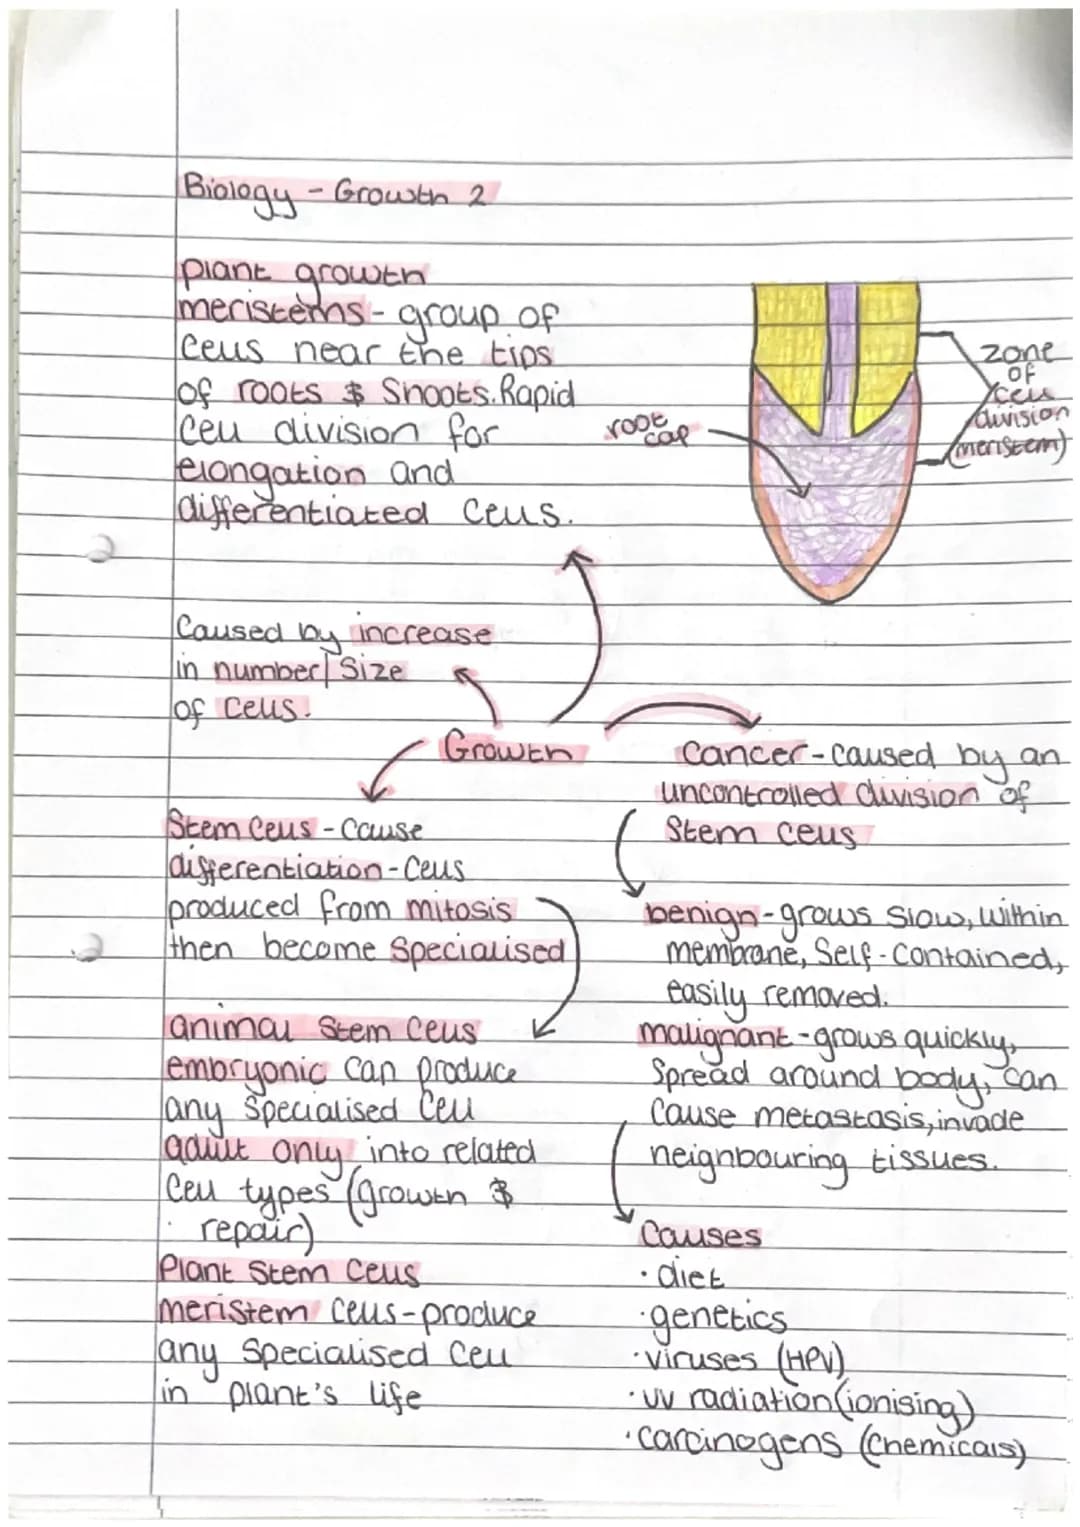 Biology - Growth 2
plant growth
meristems - group of
cells near the tips
of roots & shoots. Rapid
cell division for
elongation and
differentiated cells.
root
cap
zone
of
cell
division
(meristem)
Caused by increase
in number/size
of cells.
Growth
Stem cells - cause
differentiation - cells
produced from mitosis
then become specialised
animal stem cells
embryonic can produce
any specialised cell
adult only into related
cell types (growth &
repair)
Plant stem cells
meristem cells - produce
any specialised cell
in plant's life
Cancer - caused by an
uncontrolled division of
stem cells
benign - grows slow, within
membrane, self-contained,
easily removed.
malignant - grows quickly,
spread around body, can
cause metastasis, invade
neighbouring tissues.
Causes
· diet
· genetics
· viruses (HPV)
· UV radiation (ionising)
· carcinogens (chemicals)